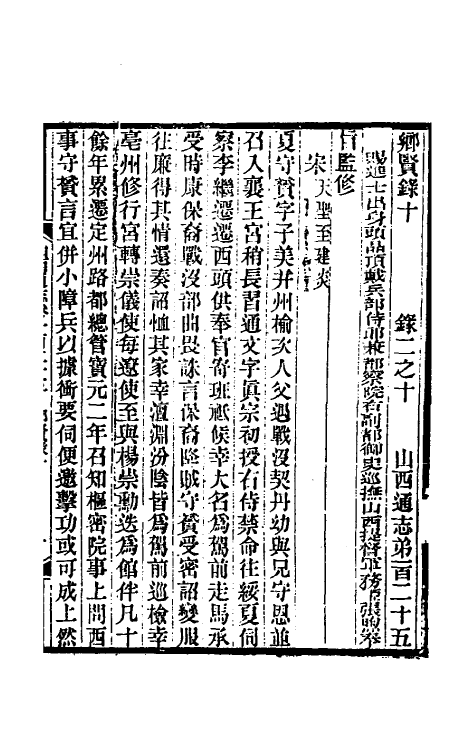 鄉賢錄十　錄二之十　山西通志弟一百二十五
賜進士出身頭品頂戴兵部侍郎兼都察院右副都御史巡撫山西提督軍務張
旨監修
宋天聖至建炎
夏守贇字子美幷州榆次人父遇戰沒契丹幼與兄守恩並
召入襄王宮稍長習通文字眞宗初授右侍禁命往綏夏伺
察李繼遷遷西頭供奉官寄班祗候幸大名爲駕前走馬承
受時康保裔戰沒部曲畏誅言保裔降賊守贇受密詔變服
往廉得其情還奏詔恤其家幸澶淵汾陰皆爲駕前巡檢幸
亳州修行宮轉崇儀使每遼使至與楊崇勳迭爲館伴凡十
餘年累遷定州路都總管寶元二年召知樞密院事上問西
事守贇言宜併小障兵以據衝要伺便邀擊功或可成上然